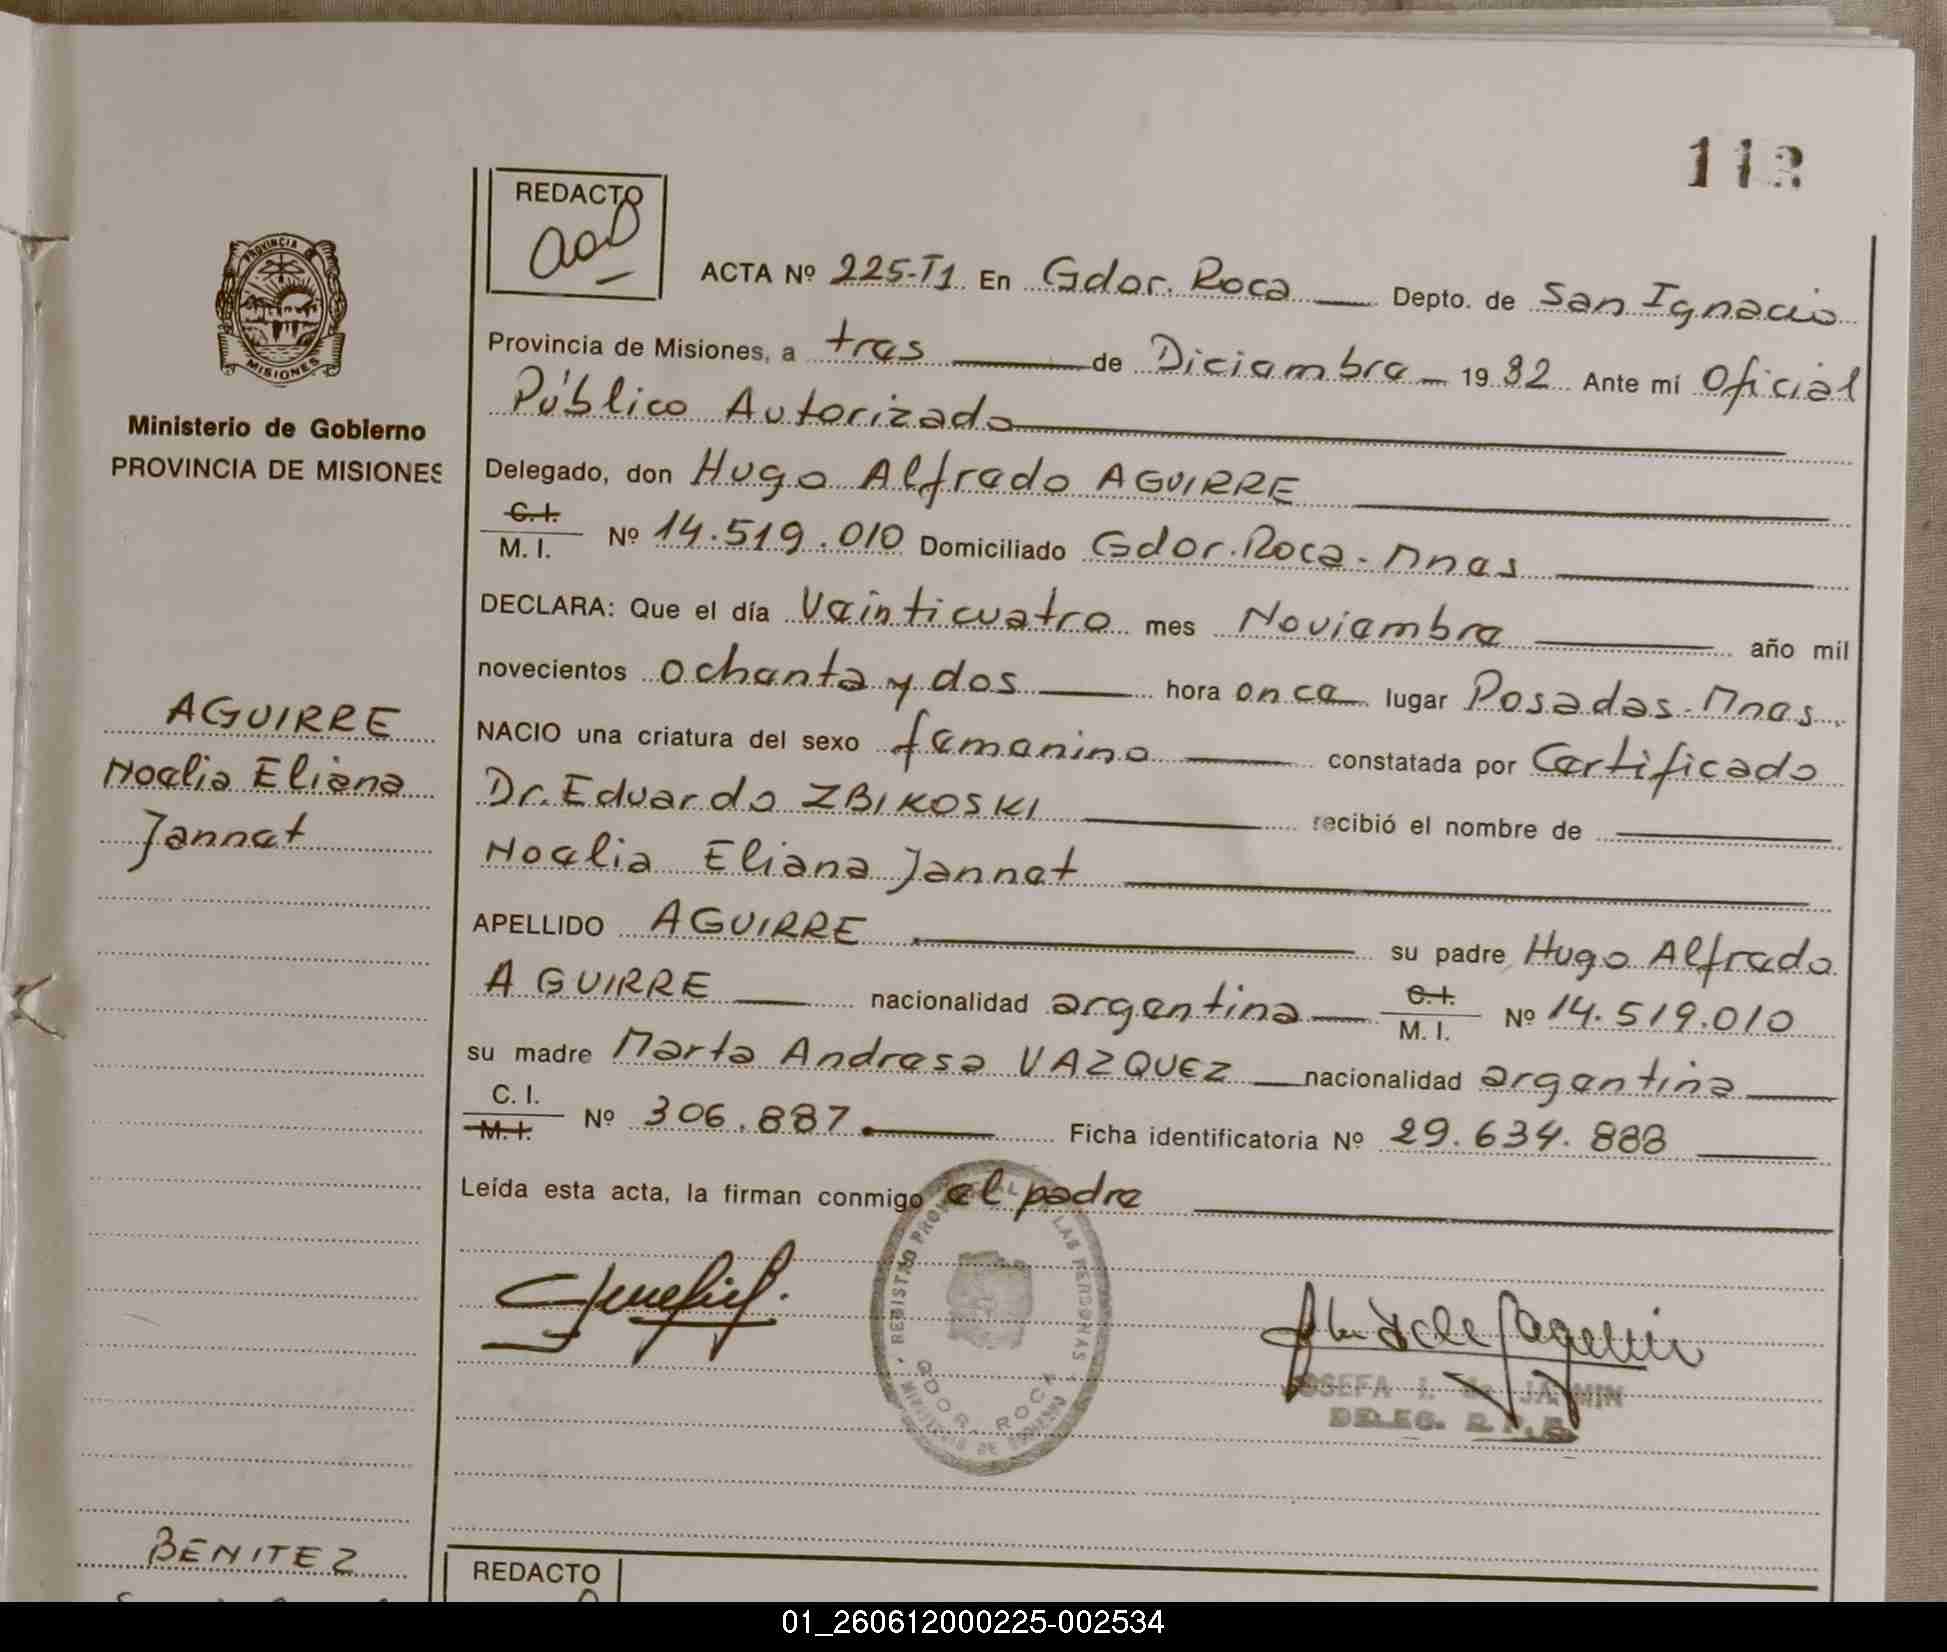 112
REDACTO
ACTA Nº 225-T1 En Gdor. Roca Depto. de San Ignacio
PROVINCIA DE MISIONES
Provincia de Misiones, a tres de Diciembre 1982 Ante mí Oficial
Público Autorizado
Ministerio de Gobierno
PROVINCIA DE MISIONES
Delegado, don Hugo Alfredo AGUIRRE
C. I.
M. I. Nº 14.519.010 Domiciliado Gdor. Roca - Mnes
DECLARA: Que el día Veinticuatro mes Noviembre año mil
novecientos ochenta y dos hora once lugar Posadas - Mnes.
AGUIRRE
Noelia Eliana
Jannet
NACIO una criatura del sexo femenino constatada por Certificado
Dr. Eduardo ZBIKOSKI recibió el nombre de
Noelia Eliana Jannet
APELLIDO AGUIRRE su padre Hugo Alfredo
AGUIRRE nacionalidad argentina C. I. M. I. Nº 14.519.010
su madre Marta Andresa VAZQUEZ nacionalidad argentina
C. I.
M. I. Nº 306.887 Ficha identificatoria Nº 29.634.888
Leída esta acta, la firman conmigo el padre
REGISTRO PROVINCIAL DE LAS PERSONAS
GDOR. ROCA
MINISTERIO DE GOBIERNO
JOSEFA I. de JAQUMIN
DELEG. R.P.P.
BENITEZ
REDACTO
01_260612000225-002534